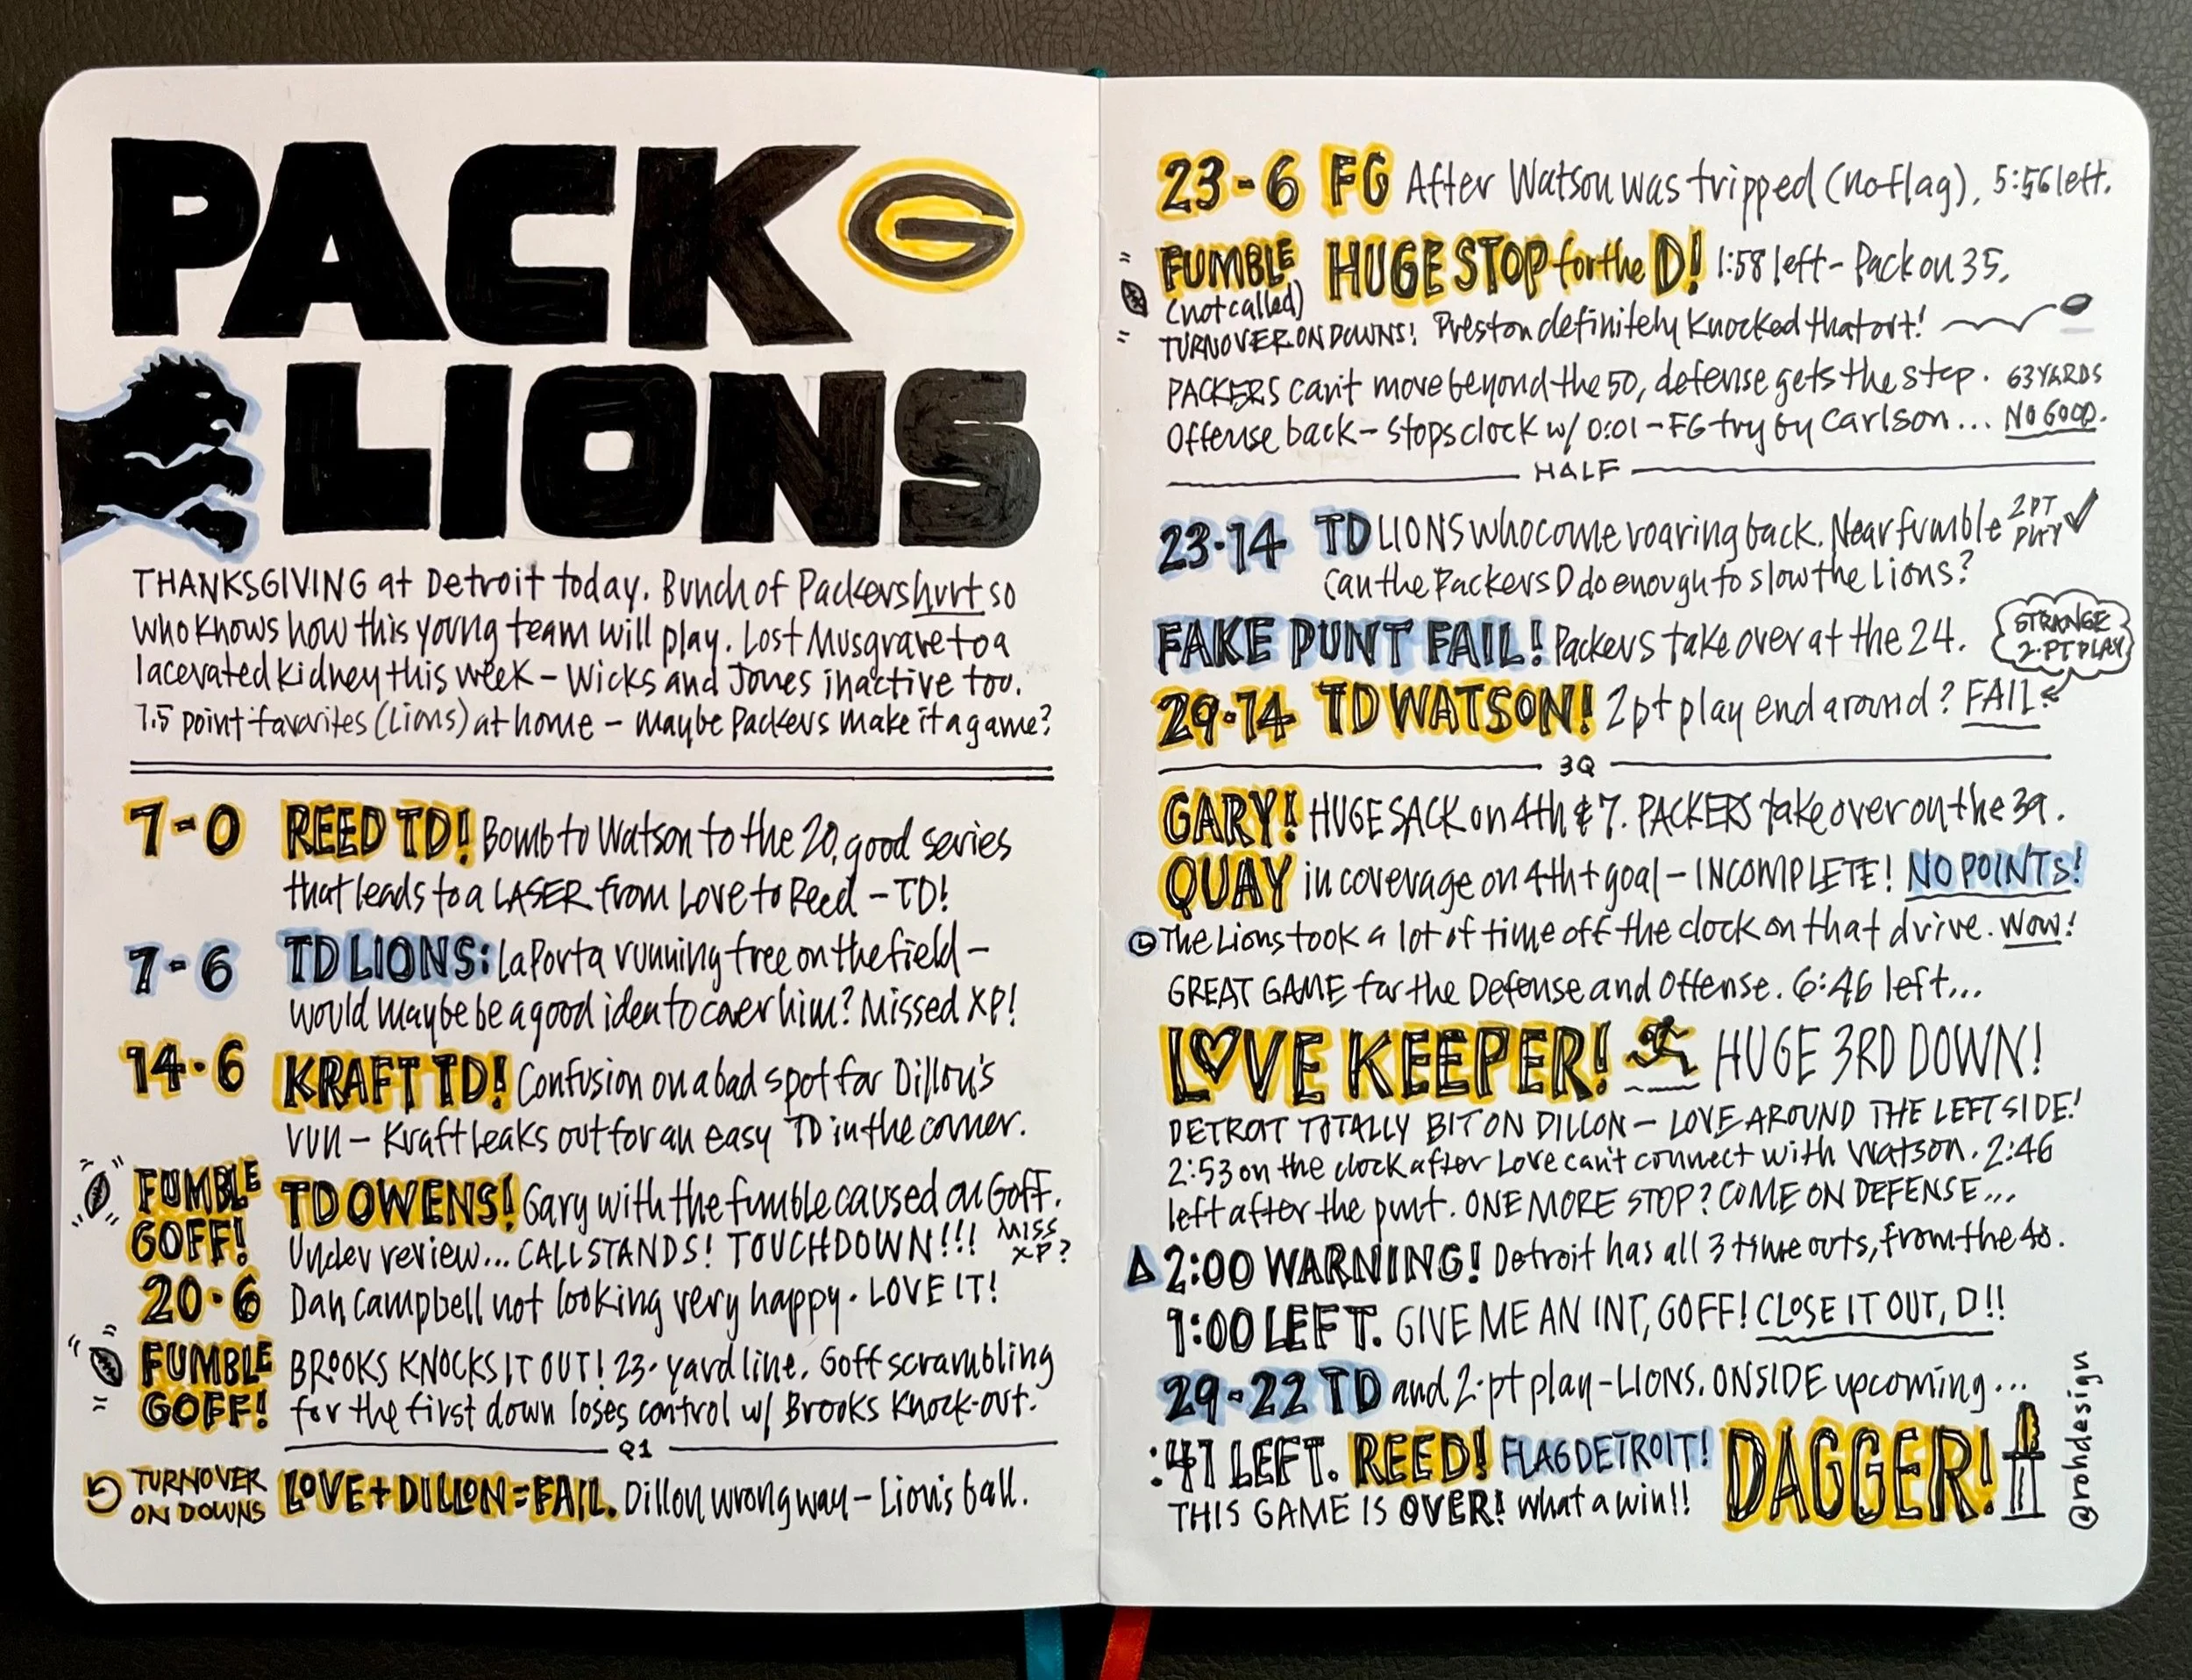 PACK
G
LIONS
THANKSGIVING at Detroit today. Bunch of Packers hurt so
who knows how this young team will play. Lost Musgrave to a
lacerated kidney this week – Wicks and Jones inactive too.
7.5 point favorites (Lions) at home – maybe Packers make it a game?
7-0 REED TD! Bomb to Watson to the 20, good series
that leads to a LASER from Love to Reed – TD!
7-6 TD LIONS: LaPorta running free on the field –
would maybe be a good idea to cover him? Missed XP!
14-6 KRAFT TD! Confusion on a bad spot for Dillon's
run – Kraft leaks out for an easy TD in the corner.
FUMBLE GOFF!
TD OWENS! Gary with the fumble caused on Goff.
Under review... CALL STANDS! TOUCHDOWN!!! MISS XP?
20-6 Dan Campbell not looking very happy. LOVE IT!
FUMBLE GOFF!
BROOKS KNOCKS IT OUT! 23-yard line. Goff scrambling
for the first down loses control w/ Brooks Knock-out.
Q1
TURNOVER ON DOWNS
LOVE + DILLON = FAIL. Dillon wrong way – Lion's ball.
23-6 FG After Watson was tripped (no flag). 5:56 left.
FUMBLE HUGE STOP for the D! 1:58 left – Pack on 35.
(not called)
TURNOVER ON DOWNS! Preston definitely knocked that out!
PACKERS can't move beyond the 50, defense gets the stop. 63 YARDS
Offense back – stops clock w/ 0:01 – FG try by Carlson... NO GOOD.
HALF
23-14 TD LIONS who come roaring back. Near fumble 2PT PLAY ✓
Can the Packers D do enough to slow the Lions?
FAKE PUNT FAIL! Packers take over at the 24.
STRANGE
2-PT PLAY
29-14 TD WATSON! 2pt play end around? FAIL
3Q
GARY! HUGE SACK on 4th & 7. PACKERS take over on the 39.
QUAY in coverage on 4th + goal – INCOMPLETE! NO POINTS!
The Lions took a lot of time off the clock on that drive. Wow!
GREAT GAME for the Defense and Offense. 6:46 left...
LOVE KEEPER! HUGE 3RD DOWN!
DETROIT TOTALLY BIT ON DILLON – LOVE AROUND THE LEFT SIDE!
2:53 on the clock after Love can't connect with Watson. 2:46
left after the punt. ONE MORE STOP? COME ON DEFENSE...
2:00 WARNING! Detroit has all 3 time outs, from the 40.
1:00 LEFT. GIVE ME AN INT, GOFF! CLOSE IT OUT, D!!
29-22 TD and 2-pt play – LIONS. ONSIDE upcoming...
:41 LEFT. REED! FLAG DETROIT! DAGGER!
THIS GAME IS OVER! what a win!!
@rohdesign